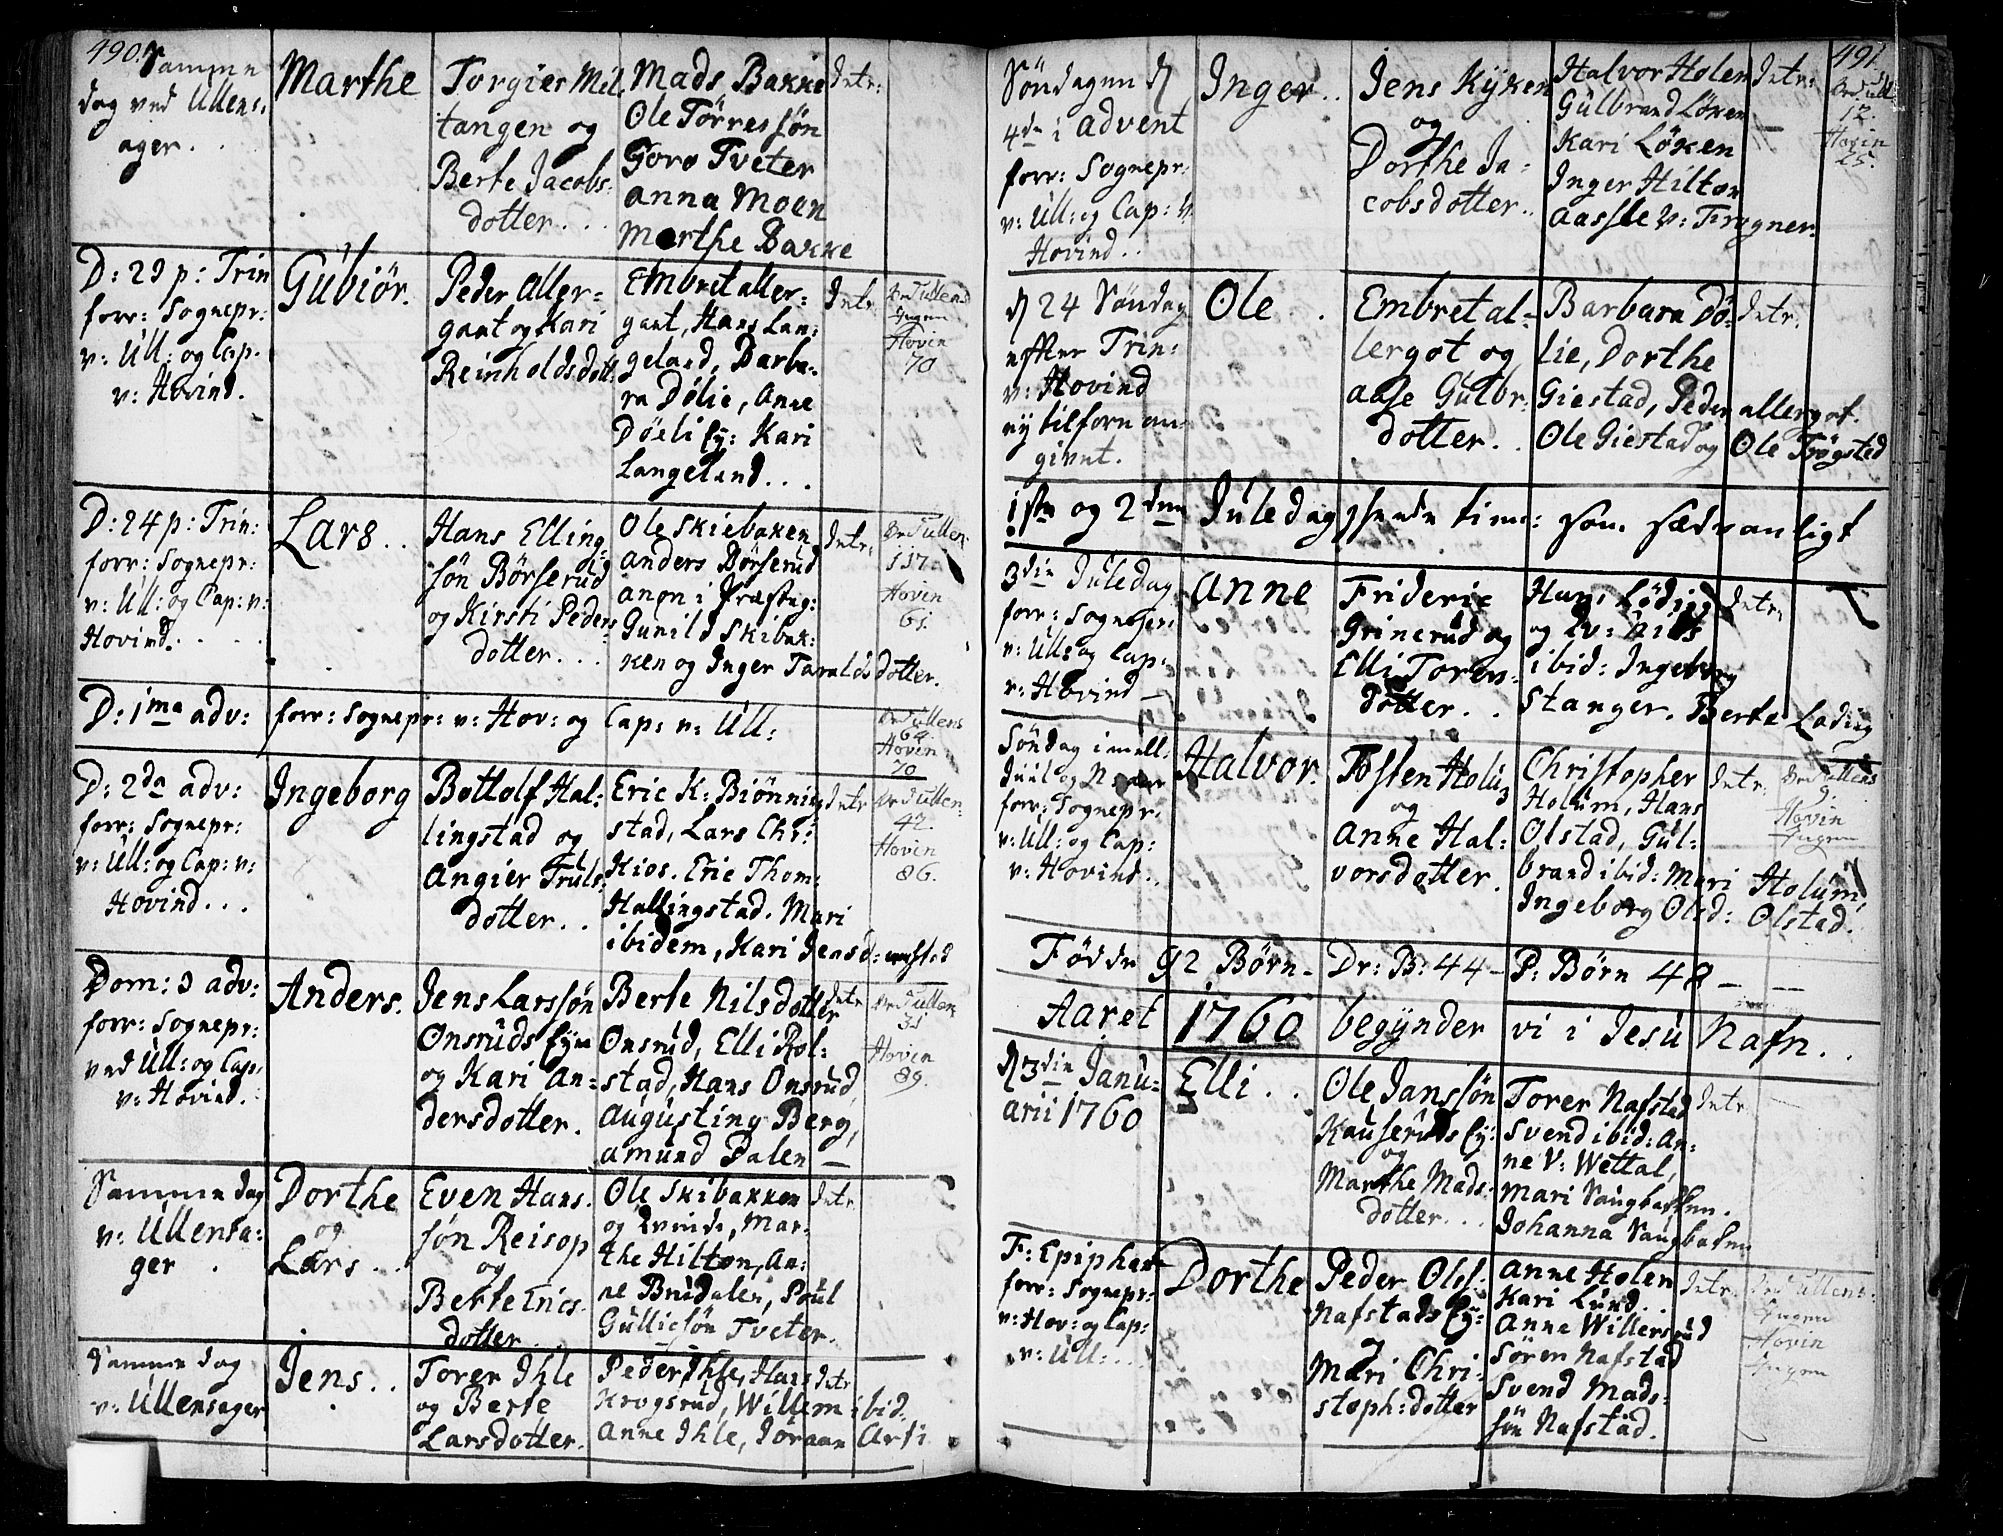 490.
Samme
dag ved Ullens:
ager. .
Marthe
Torgier Mel
tangen og
Berte Jacobs:
dotter. . .
Mads Bakke
Ole Törres sön
Goro Tveter
Anna Moen
Marthe Bakke
Intr:
D: 23 p: Trin
forr: Sognepr:
v: Ull: og Cap.
v: Hovind.
Gúbiör.
Peder Aller=
gaat og Kari
Reinholdsdott:
Embret aller=
gaat, Hans Lan:
geland, Barba=
ra Dölie, Anne
Döeli Ey: Kari
Langeland. . .
Intr
Ingen
Hovin
70
D: 24 p: Trin:
forr: Sognepr:
v: Ull: og Cap: v:
Hovind. . . .
Lars . .
Hans Elling=
sön Börserúd
og Kirsti Peders
dotter. . .
Ole Skiebaken
anders Börserúd
anon i Præsteg:
Gunild Skibak:
ken og Inger Taralds dotter.
Intr:
117.
Hovin
61
D: 1ma adv:
forr: Sognepr: v: Hov: og Cap: v: Ull:
64.
Hoven
70
D: 2da adv:
forr: Sognepr:
v: Ull: og Cap: v:
Hovind. . .
Ingeborg
Bottolf Hal:
lingstad og
Angier Truls
dotter. .
Eric K: Biönning
stad, Lars Chr:
Hios. Eric Thom:
Hallingstad. Mari
ibidem, Kari Jensd:
Intr
42.
Hovin
86.
Dom: 3 adv:
forr: Sognepr:
ved Ull: og Cap.
v: Hovind.
Anders.
Jens Larssön
Onsrúds Eyn
og Kari An=
dersdotter.
Berte Nilsdotter
Onsrúd, Elli Rol=
stad, Hans Onsrud
Augústing Berg,
amúnd Dalen —
Intr
31
Hovin
89.
Samme dag
v: Ullensa:
ger .
Dorthe
og
Lars . .
Even Hans.
sön Reisop
og
Berte Erics.
dotter
Ole Skibakken
og Qvinde, Mar=
the Hilton, An:
ne Brúdalen, Poúl
Gulliesön Tveter.
Intr.
Samme dag
v: Ullensager
Jens. .
Torer Ihle
og Berte
Larsdotter.
Peder Ihle, Hans
Krogsrud, Willem ibid.
Anne Ihle, Joraan Arti
Intr
491.
Söndagen d
4de i Advent
forr: Sognepr:
v: Ull: og Cap: v.
Hovind. .
Inger . .
Jens Kyken
og
Dorthe Ja=
cobsdotter. .
Halvor Holen
Gülbrand Löken
Kari Löken
Inger Hilton
aasse v: Trogner.
Intr:
12.
Hovin
25.
d 24 Söndag
effter Trin:
v: Hovind
ey tilforn an=
givet.
Ole .
Embret al=
lergot og
aase Gulbr:
dotter. .
Barbara Dö=
lie, Dorthe
Giestad, Peder allergot.
Ole Giestad og Ole Trögsted
Intr.
1ste og 2den Júledag som sædvanligt
3die Júledag
forr: Sogneper:
v: Ull: og Cap:
v: Hovind —
Anne
Frideric
Grinerúd og
Elli Tores=
dotter. .
Hans Löding
ibid: Ingeborg
Stanger. Berte Lading
Intr:
Söndag imell.
Júul og
forr: Sognepr.
v: Ull: og Cap:
v: Hovind. .
Halvor.
Tosten Holú
og
Anne Hal=
vorsdotter.
Christopher
Holúm, Hans
Olstad, Gúl=
brand ibid: Mari Holúm,
Ingeborg Olsd: Olstad.
Intr:
9.
Hovin
Ingen
Födde 92 Börn - Dr: B: 44 - P: Börn 48 — —
Aaret 1760 begynder vi i Jesú Nafn. .
d 3die Janu=
arii 1760
Elli . .
Ole Janssön
Kauserúds Ey:
og
Marthe Mads=
dotter. . .
Torer Nafstad
Svend ibid: An=
ne V: Wettal,
Mari Saugbakken.
Johanna Saugbaken
Intr.
F: Epiphan
forr: Sognepr:
v: Hov: og Cap:
v: Ull: . . .
Dorthe
Peder Ols:
Nafstads Ey:
og
Mari Chri=
stoph: dotter
Anne Holen
Kari Lúnd . .
Anne Willersrúd
Sören Nafstad
Svend Mads=
sön Nafstad.
Intr.
Ingen
Hovin
Ingen